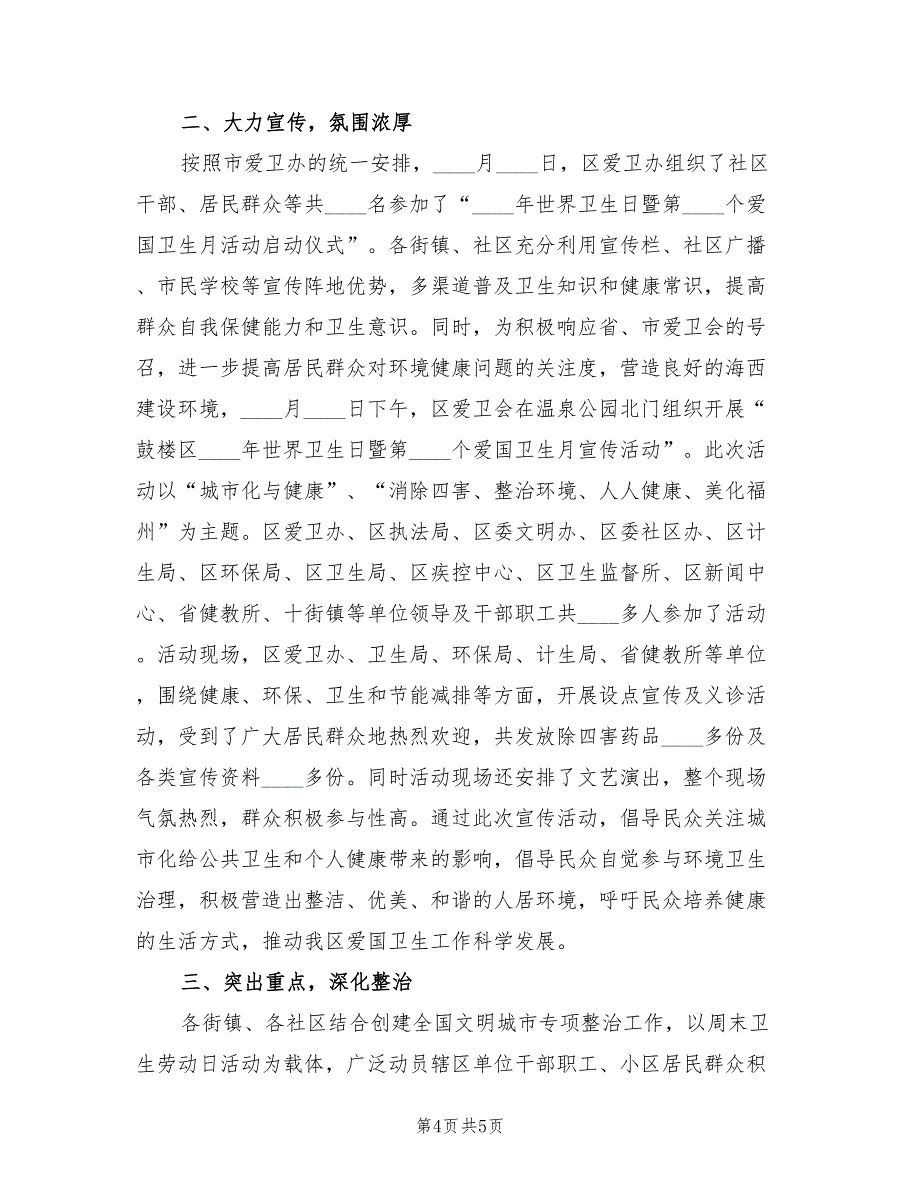 二、大力宣传，氛围浓厚
按照市爱卫办的统一安排，____月____日，区爱卫办组织了社区
干部、居民群众等共____名参加了“____年世界卫生日暨第____个爱
国卫生月活动启动仪式”。各街镇、社区充分利用宣传栏、社区广播
、市民学校等宣传阵地优势，多渠道普及卫生知识和健康常识，提高
群众自我保健能力和卫生意识。同时，为积极响应省、市爱卫会的号
召，进一步提高居民群众对环境健康问题的关注度，营造良好的海西
建设环境，____月____日下午，区爱卫会在温泉公园北门组织开展“
鼓楼区____年世界卫生日暨第____个爱国卫生月宣传活动”。此次活
动以“城市化与健康”、“消除四害、整治环境、人人健康、美化福
州”为主题。区爱卫办、区执法局、区委文明办、区委社区办、区计
生局、区环保局、区卫生局、区疾控中心、区卫生监督所、区新闻中
心、省健教所、十街镇等单位领导及干部职工共____多人参加了活动
。活动现场，区爱卫办、卫生局、环保局、计生局、省健教所等单位
，围绕健康、环保、卫生和节能减排等方面，开展设点宣传及义诊活
动，受到了广大居民群众地热烈欢迎，共发放除四害药品____多份及
各类宣传资料____多份。同时活动现场还安排了文艺演出，整个现场
气氛热烈，群众积极参与性高。通过此次宣传活动，倡导民众关注城
市化给公共卫生和个人健康带来的影响，倡导民众自觉参与环境卫生
治理，积极营造出整洁、优美、和谐的人居环境，呼吁民众培养健康
的生活方式，推动我区爱国卫生工作科学发展。
三、突出重点，深化整治
各街镇、各社区结合创建全国文明城市专项整治工作，以周末卫
生劳动日活动为载体，广泛动员辖区单位干部职工、小区居民群众积
第4页共5页